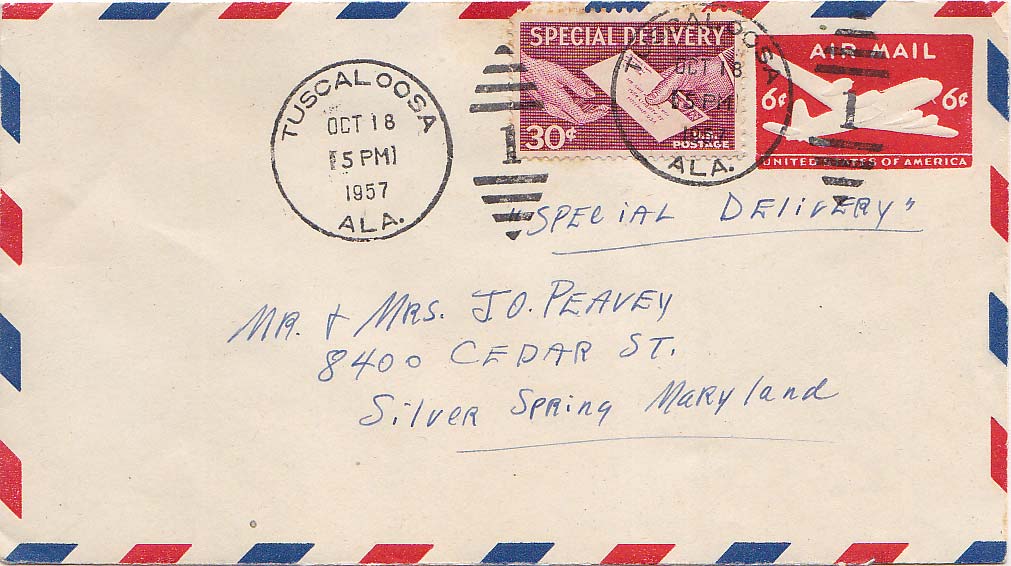 TUSCALOOSA
OCT 18
5 PM
1957
ALA.
1
SPECIAL DELIVERY
30¢
POSTAGE
TUSCALOOSA
OCT 18
5 PM
1957
ALA.
AIR MAIL
6¢ 6¢
1
UNITED STATES OF AMERICA
"SPECiAL DELIVERY"
MR. + MRS. J.O. PEAVEY
8400 CEDAR ST.
Silver Spring Maryland